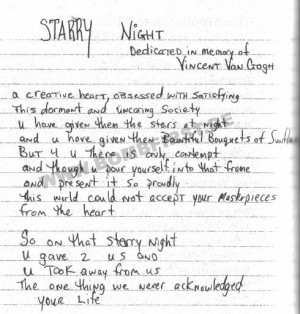 STARRY NIGHT
Dedicated in memory of
VINCENT VAN GOGH
a creative heart, obsessed with satisfying
This dormant and uncaring Society
u have given them the stars at night
and u have given them Bountiful Bouquets of Sunflowers
BUT 4 u There is only contempt
and though u pour yourself into that frame
and present it so proudly
this world could not accept your Masterpieces
from the heart
So on that starry night
u gave 2 us and
u Took away from us
The one thing we never acknowledged
your Life